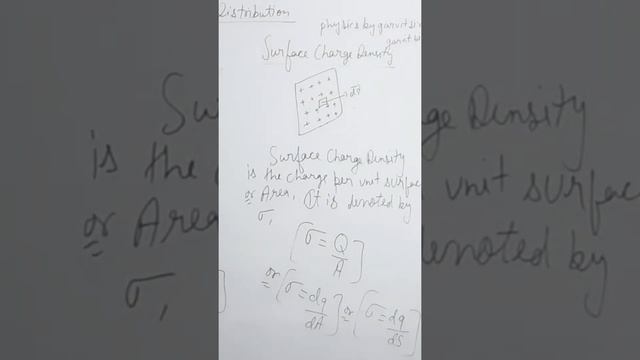 Distribution
physics by garvit sir
Surface Charge Density
Surface Charge Density
is the charge per unit surface
or Area. It is denoted by
σ,
[σ = Q/A]
or [σ = dq/dA] or [σ = dq/dS]